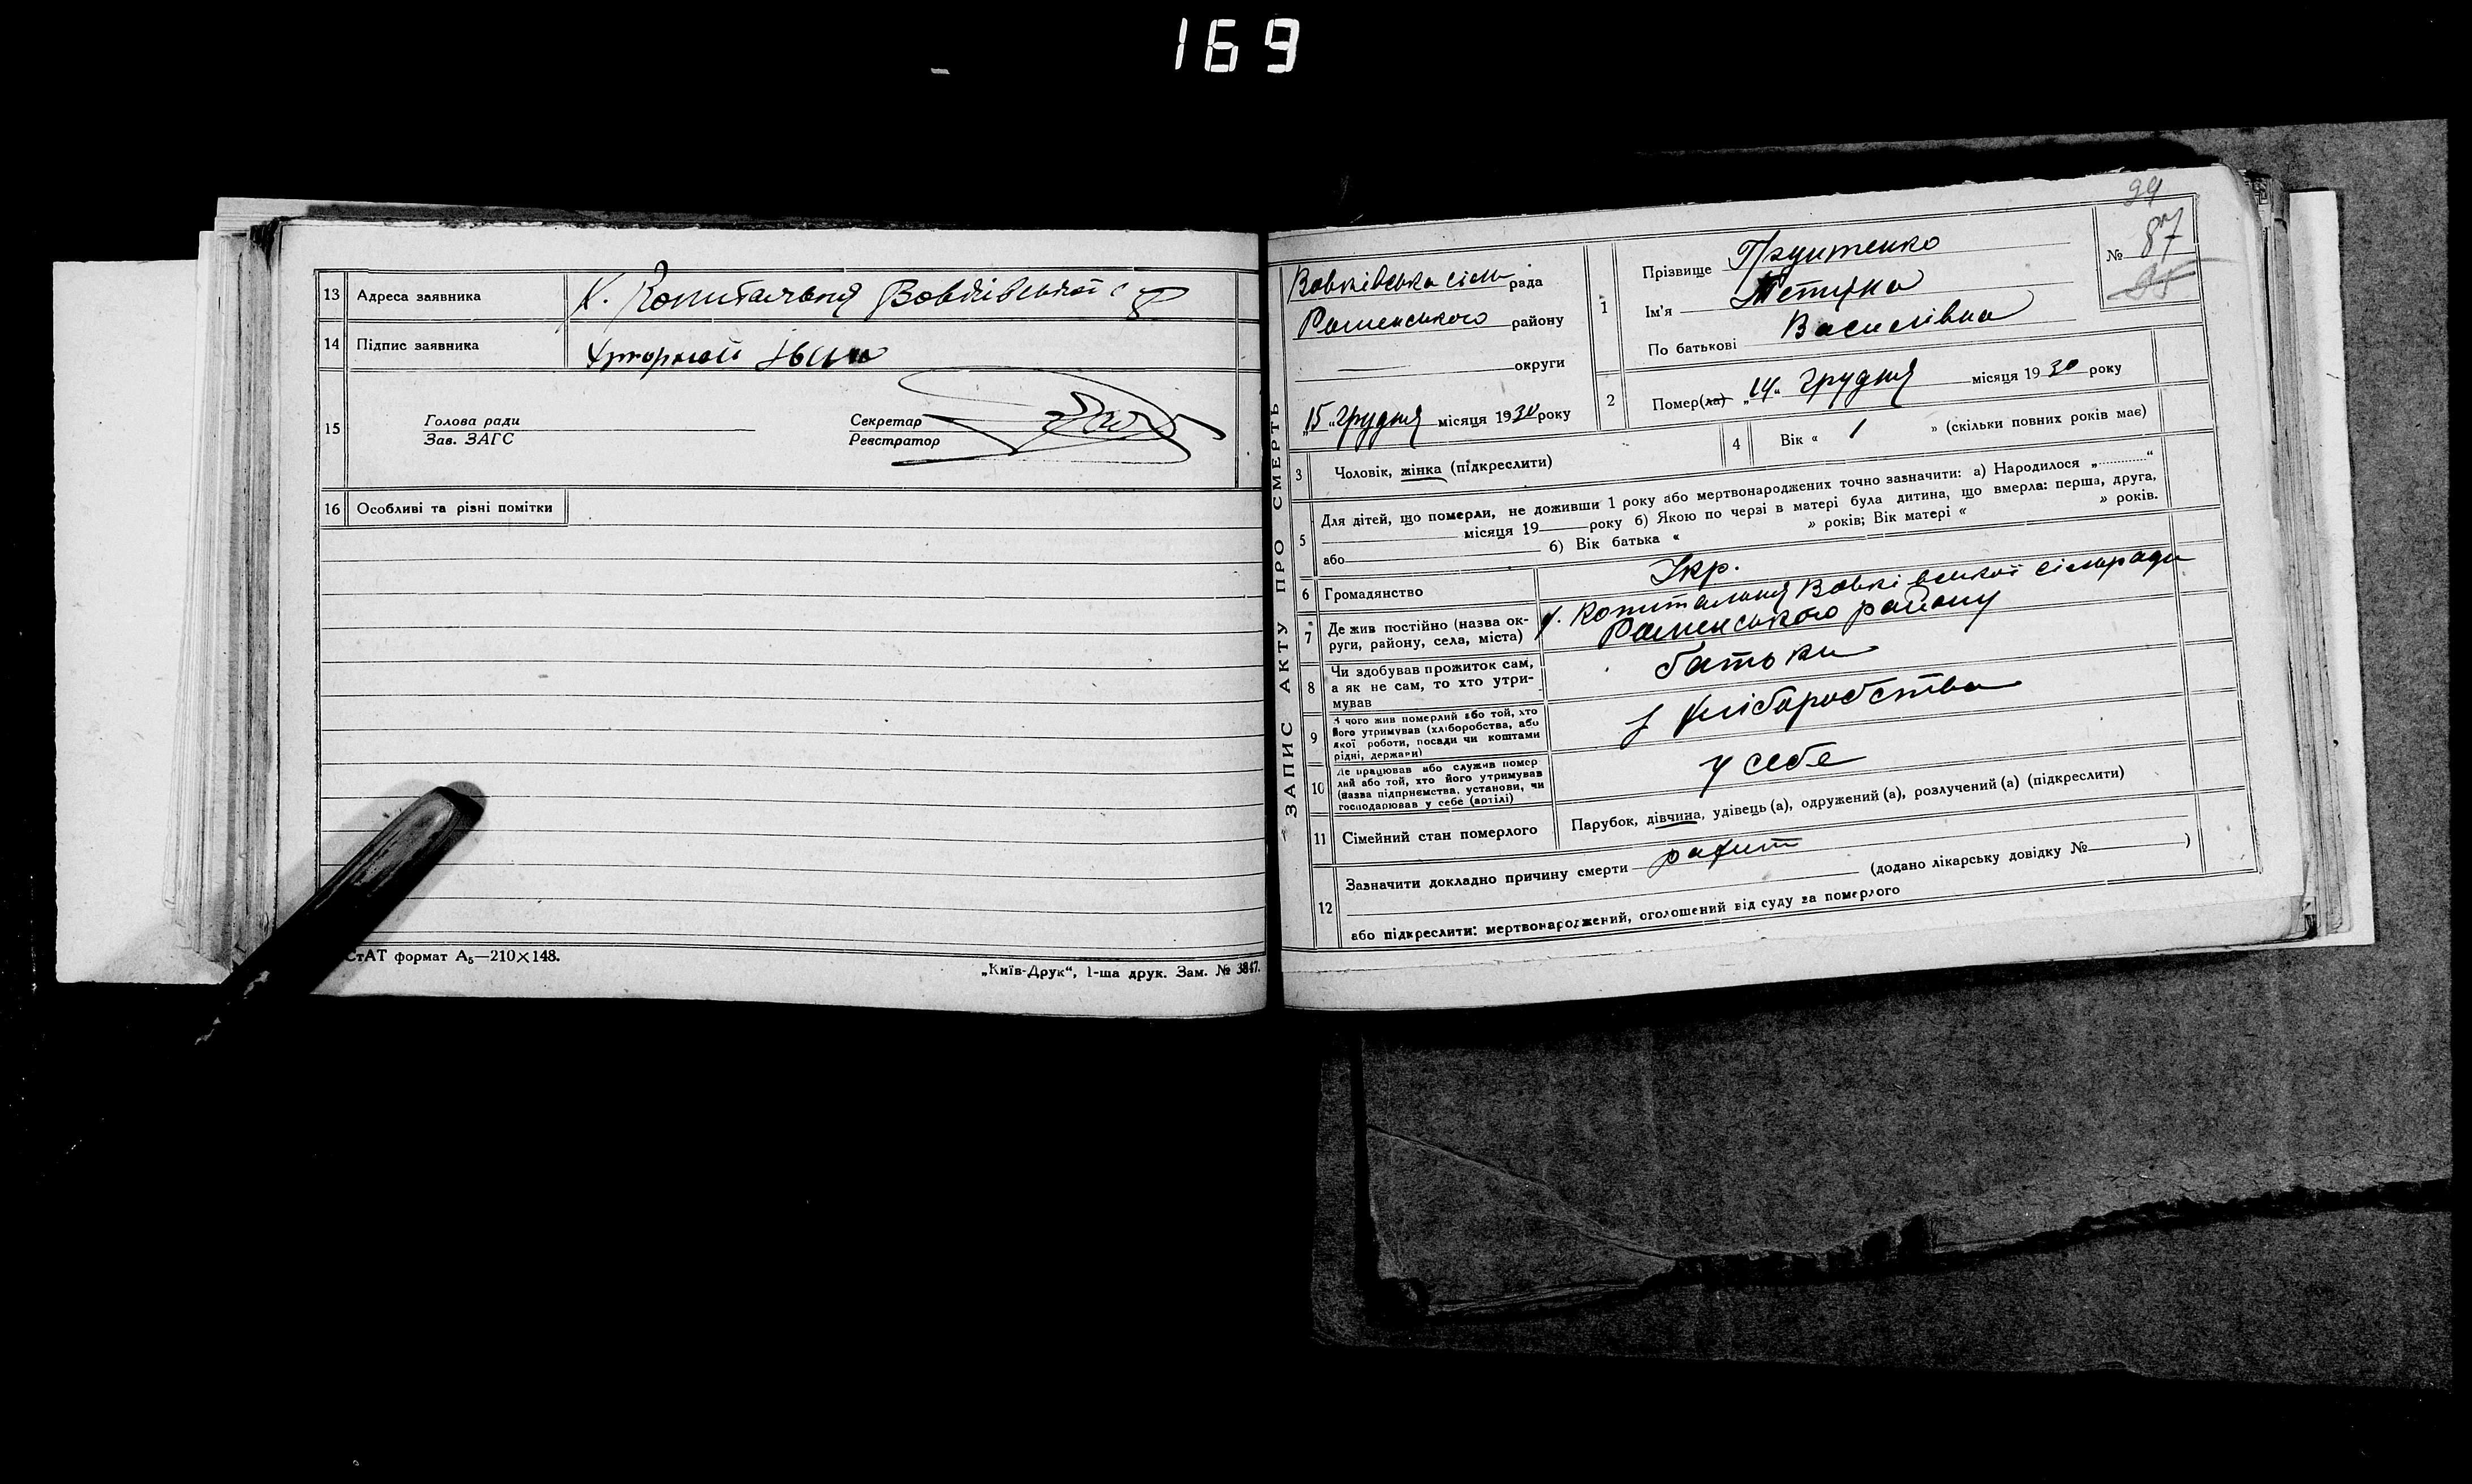 169
13 Адреса заявника х. Копитальня Вовківської с р
14 Підпис заявника Хуторной Іван
15 Голова ради
Зав. ЗАГС
Секретар
Реєстратор
16 Особливі та різні помітки
СтАТ формат А₅—210×148.
„Київ-Друк“, 1-ша друк. Зам. № 3847.
ЗАПИС АКТУ ПРО СМЕРТЬ
99
№ 87
95
Вовківська сіль рада
Роменського району
округи
„15“ грудня місяця 1930 року
1 Прізвище
Ім'я
По батькові Василівна
2 Помер(ла) „14“ грудня місяця 1930 року
3 Чоловік, жінка (підкреслити)
4 Вік « 1 » (скільки повних років має)
5 Для дітей, що померли, не доживши 1 року або мертвонароджених точно зазначити: а) Народилося „ “
місяця 19 року б) Якою по черзі в матері була дитина, що вмерла: перша, друга,
або б) Вік батька « » років; Вік матері « » років.
6 Громадянство Укр.
7 Де жив постійно (назва ок-
руги, району, села, міста) х. Копитальня Вовківської сільради
Роменського району
8 Чи здобував прожиток сам,
а як не сам, то хто утри-
мував батьки
9 З чого жив померлий або той, хто
його утримував (хліборобства, або
якої роботи, посади чи коштами
рідні, держави) з хліборобства
10 Де працював або служив помер
лий або той, хто його утримував
(назва підприємства, установи, чи
господарював у себе (артілі) у себе
11 Сімейний стан померлого Парубок, дівчина, удівець (а), одружений (а), розлучений (а) (підкреслити)
12 Зазначити докладно причину смерти рахит
(додано лікарську довідку № )
або підкреслити: мертвонароджений, оголошений від суду за померлого